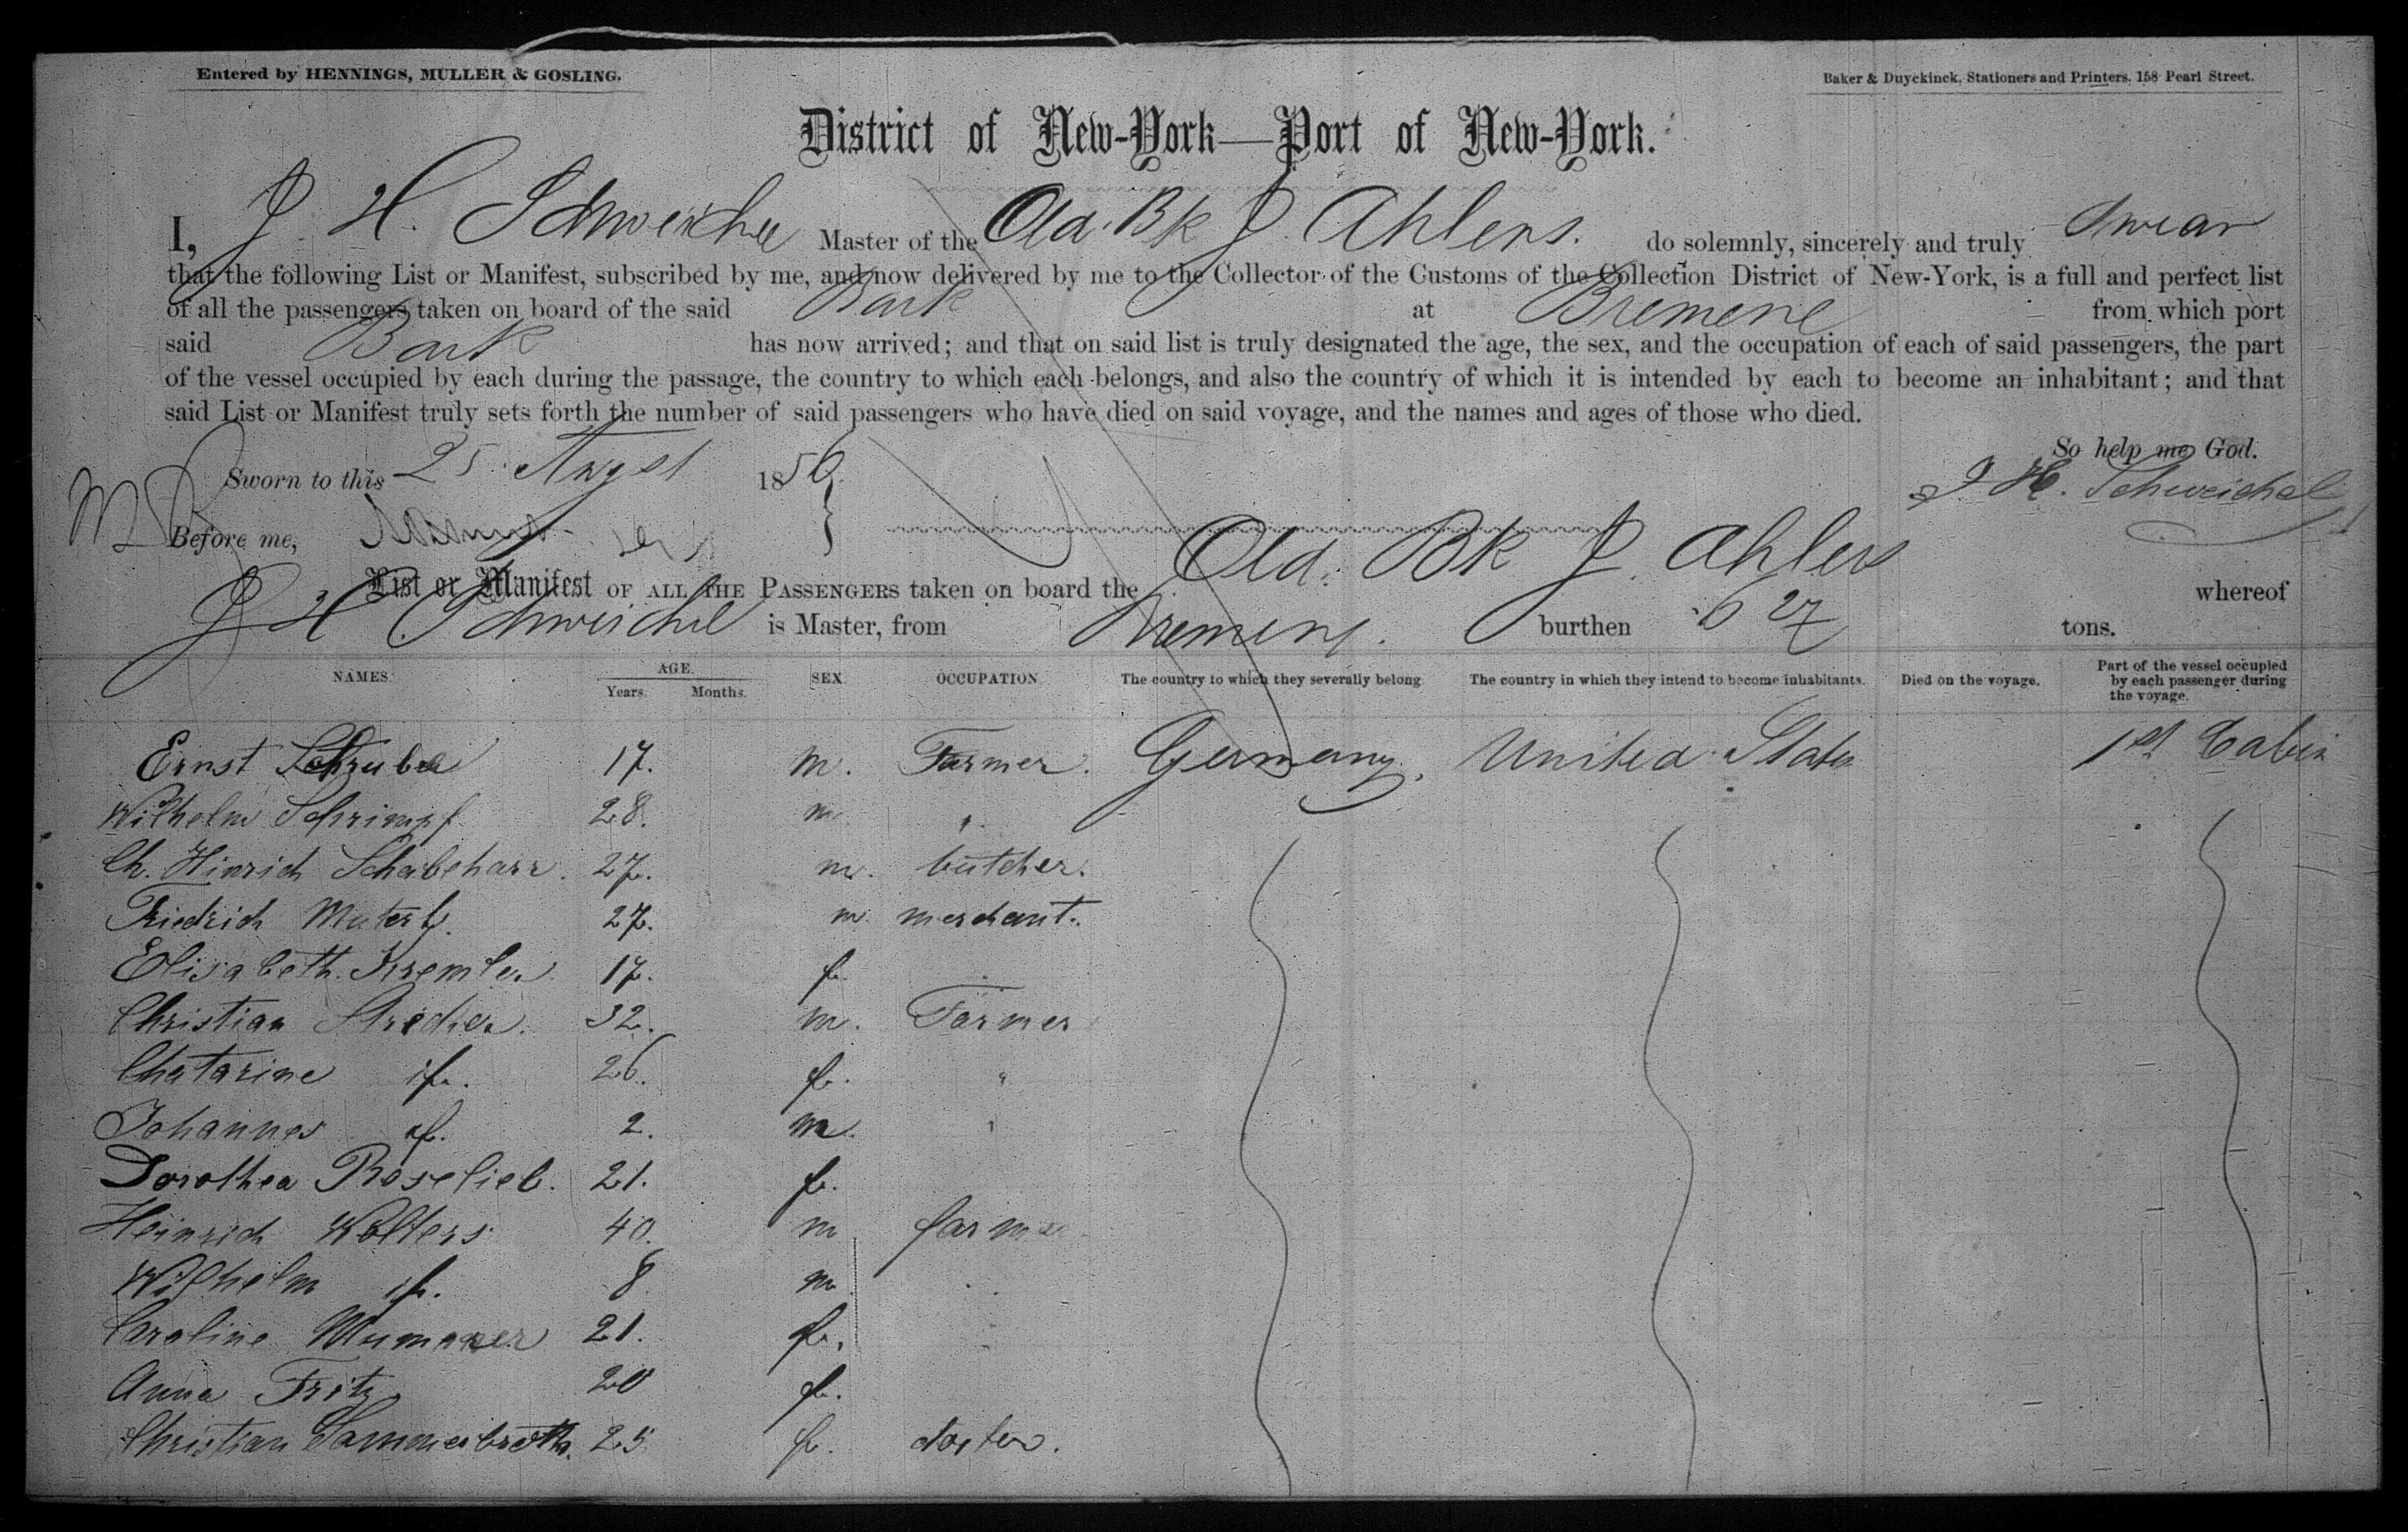 Entered by HENNINGS, MULLER & GOSLING.
Baker & Duyckinck, Stationers and Printers. 158 Pearl Street.
District of New-York—Port of New-York.
I, J. H. Schweichel Master of the Old. Bk J. Ahlers. do solemnly, sincerely and truly swear
that the following List or Manifest, subscribed by me, and now delivered by me to the Collector of the Customs of the Collection District of New-York, is a full and perfect list
of all the passengers taken on board of the said Bark at Bremene from which port
said Bark has now arrived; and that on said list is truly designated the age, the sex, and the occupation of each of said passengers, the part
of the vessel occupied by each during the passage, the country to which each belongs, and also the country of which it is intended by each to become an inhabitant; and that
said List or Manifest truly sets forth the number of said passengers who have died on said voyage, and the names and ages of those who died.
So help me God.
Sworn to this 25 Augst 1856
J. H. Schweichel
Before me,
List or Manifest OF ALL THE PASSENGERS taken on board the Old. Bk J. Ahlers whereof
J H Schweichel is Master, from Bremene. burthen 627 tons.
NAMES. AGE. Years. Months. SEX. OCCUPATION. The country to which they severally belong. The country in which they intend to become inhabitants. Died on the voyage. Part of the vessel occupied by each passenger during the voyage.
Ernst 17. m. Farmer. Germany. United States 1st Cabin
Wilhelm Schrimpf 28. m. "
Ch. Hinrich Schabeharr. 27. m. butcher.
Friedrich 27. m. merchant.
Elisabeth 17. f.
Christian 32. m. Farmer
Chatarine 26. f. "
Johannes 2. m. "
Dorothea Roselieb. 21. f.
Heinrich Wolters 40. m farmer
Wilhelm 8. m
Caroline 21. f.
Anna Fritz 20 f.
Christian Sommerbroth. 25 f.